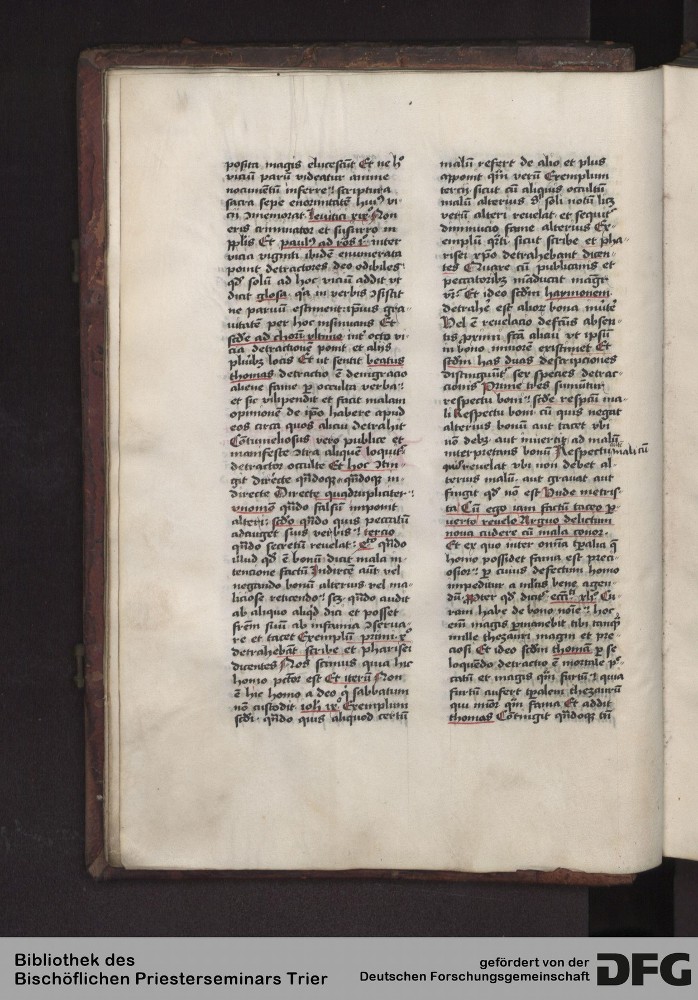 posita magis elucescūt Et ne hᵒ
viciū parū videatur anime
nocumētū inferre scriptura
sacra sepe enormitatē huiꝰ vi
cii ɔmemorat Levitici xixᵒ Non
eris criminator et susurro in
pplis Et paulꝰ ad roōs iᵒ inter
vicia viginti ibidē enumerata
ponit detractores deo odibiles
qd̓ solū ad hoc viciū addit vt
dicit glosa qͣ in verbis ɔsistit
ne parvū estiment ipsius gra
vitatē per hoc insinuans Et
scdē ad choriī vltimo int̓ octo vi
cia detractionē ponit et aliis
plͥibꝫ locis Et ut sentit beatus
thomas detractio ē denigracio
aliene fame p occulta verba
et sic vilipendit et facit malam
opinionē de ip̄o habere apud
eos circa quos alicui detrahit
Cōtumeliosus vero publice et
manifeste ɔtra aliquē loquit̉
detractor occulte Et hoc ɔtin
git directe qn̄doqꝫ qn̄doqꝫ in
directe Directe quadrupliciter
vnomō qn̄do falsū imponit
alteri scdō qn̄do quis peccatū
adauget suis verbis tercio
qn̄do secretū revelat qͬto qn̄do
illud qd̓ ē bonū dicit mala in
tencione factū Indirce aūt vel
negando bonū alterius vel ma
liciose reticendo scꝫ qn̄do audit
ab aliquo aliqd̓ dici et posset
frēm suū ab infamia ɔserva
re et tacet Exemplū primi xᵒ
detrahebāt scribe et pharisei
dicentes Nos scimus quia hic
homo pctōr est Et iterū Non
ē hic homo a deo qͥ sabbatum
nō custodit ioh ixᵒ Exemplum
scdī qn̄do quis aliquod certū
malū refert de alio et plus
apponit qͣm verū Exemplum
tercii sicut cū aliquis occultū
malū alterius sͥ soli notū licꝫ
verū alteri revelat et sequit̉
diminucio fame alterius Ex
emplū qͬti sicut scribe et pha
risei xp̄o detrahebant dicen
tes Quare cū publicanis et
peccatoribꝫ māducat magr̄
vr̄ Et ideo scdm̄ haymonem
detrahē est alioꝝ bona mutē
Vel ē revelacio defcūs absen
tis prim scm̄ alicui vt ipsū
in bono minorē existimet Et
scdm̄ has duas descripciones
distinguūt̉ sex species detrac
cionis Prime tres sumūtur
respectu boni scdē respcū ma
li Respectu boni cū quis negat
alterius bonū aut tacet vbi
nō debꝫ aut invertit ad malū
interpretans bonū Respectu mali cū
quis revelat vbi non debet al
terius malū aut gravat aut
fingit qd̓ nō est Vnde metris
ta Cū ego iam factū taceo p
verto revelo Arguo delictum
nova cudere cū mala conor
Et ex quo inter omīa tpalia qͣ
homo possidet fama est preci
osior p cuius defectum homo
impeditur a ml̓tis bene agen
dū Ppter qd̓ dicit̉ ecci xliᵒ Cu
ram habe de bono noīe hoc
eīm magis pmanebit tibi tanqͣ
mille thezauri magni et pre
ciosi Et ideo scdm̄ thomā p se
loquēdo detractio ē mortale pᵒ
catū et magis qͣm furtū quia
furtū aufert tpalem thezaurū
qui miōr qͣm fama Et addit
thomas Cōtingit qn̄doqꝫ tn̄
Bibliothek des
Bischöflichen Priesterseminars Trier
gefördert von der
Deutschen Forschungsgemeinschaft
DFG